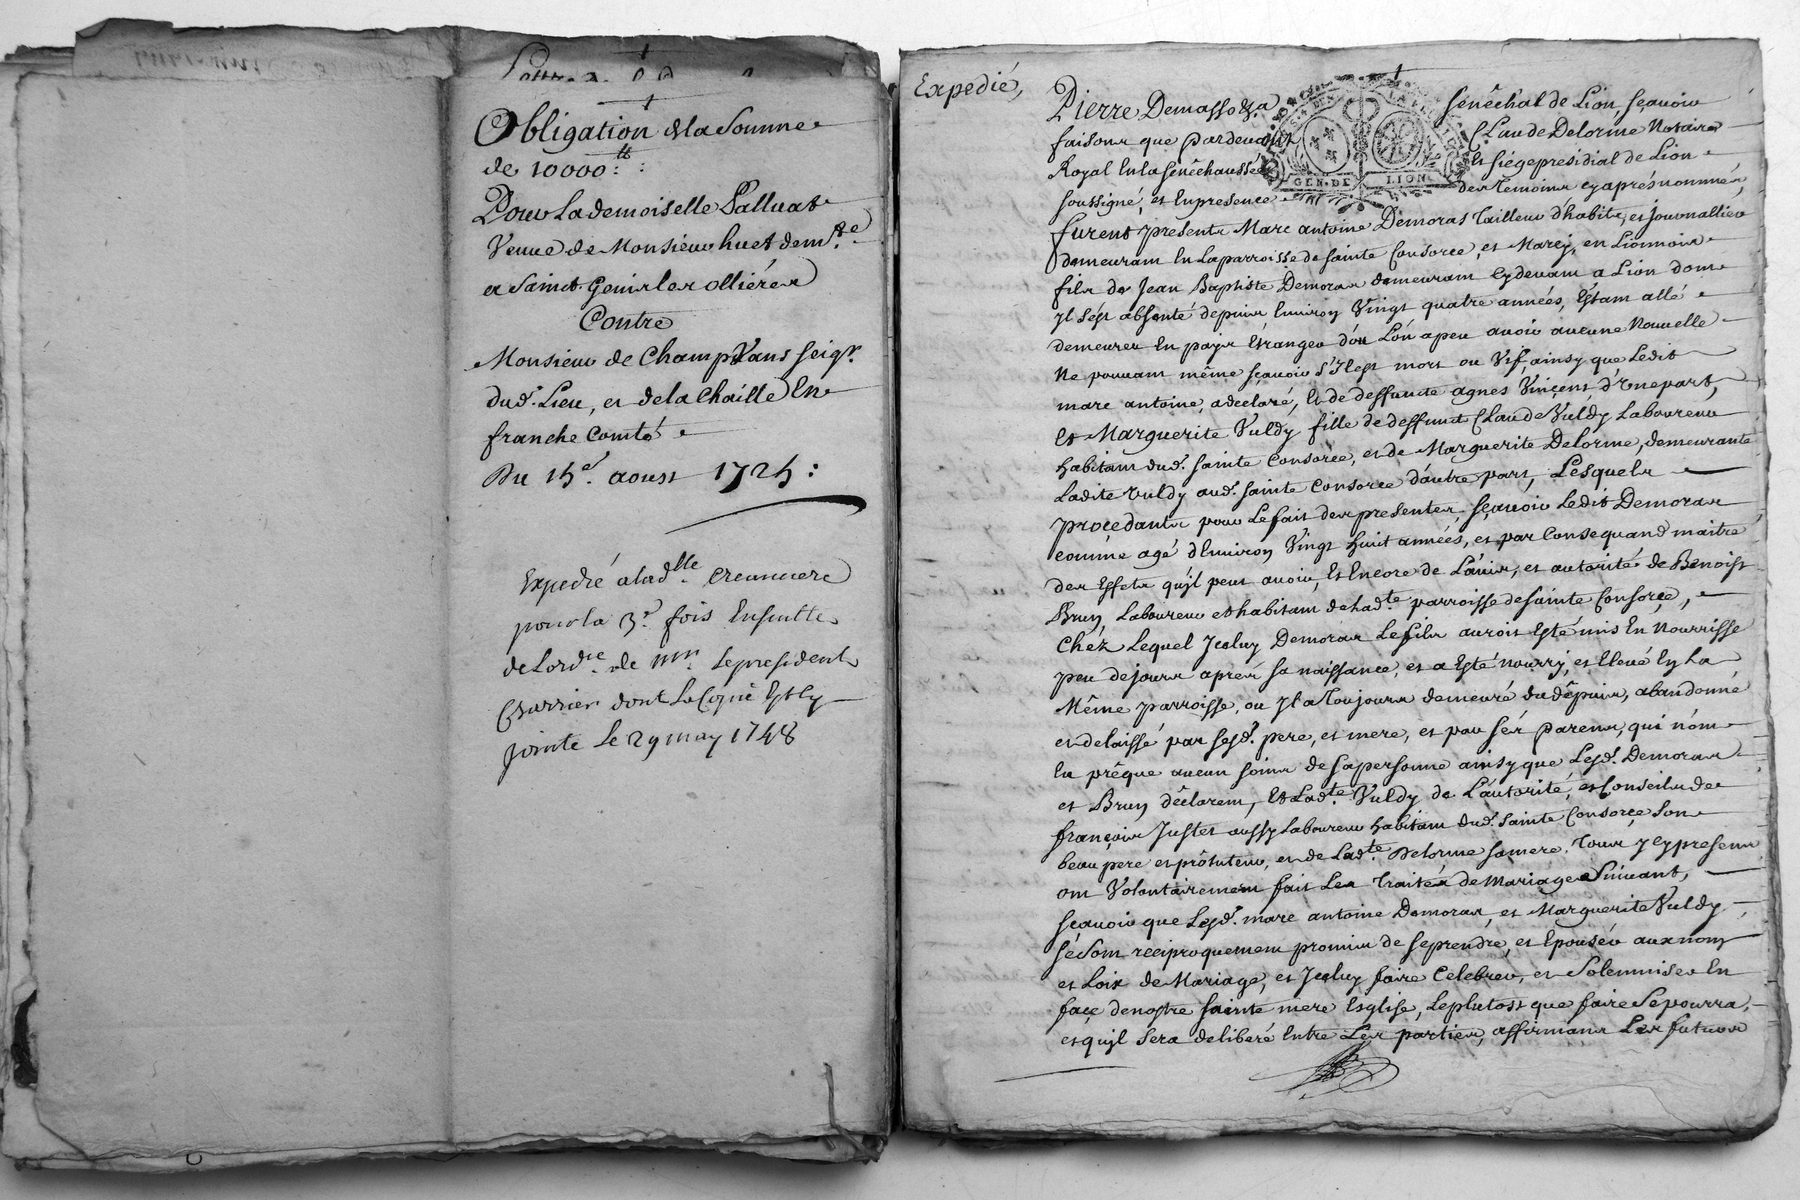 Obligation de la Somme
de 10000.tt:
Pour La demoiselle Palluat
Veuve de Monsieur huet dem.te
a Sainct Genis les ollières
Contre
Monsieur de Champvans seigr.
dud. Lieu, et de la Chaille En
franche Comté
Du 15e. aoust 1725:
Expedié a lad.lle Creanciere
pour la 3e. fois Ensuitte
de Lord.re de Mr. Le president
Charrier dont La Copie Est cy
jointe Le 29 may 1748
Expedié,
Pierre Demasso &a sénéchal de Lion, sçavoir
faisons que pardevant Claude Delorme Notaire
Royal En la senêchaussée et siége presidial de Lion
GEN. DE LION
soussigné, et En presence des temoins cy aprés nommés,
furent presents Marc antoine Demoras Tailleur d'habits, et journallier
demeurant En La parroisse de sainte Consorce, et Marcy, en Lionnois
fils de Jean Baptiste Demoras demeurant Cy devant a Lion dont
jl s'est absenté depuis Environ Vingt quatre années, Estant allé
demeurer En pays Etranger d'ou L'on a peu avoir aucune Nouvelle
Ne pouvant même sçavoir s'Il est mort ou Vif, ainsy que Ledit
marc antoine, a declaré, et de deffuncte agnes Vinçent, d'Une part,
Et Marguerite Vuldy fille de deffunct Claude Vuldy Laboureur
habitant dud. sainte Consorce, et de Marguerite Delorme, demeurante
Ladite Vuldy aud. sainte Consorce d'autre part, Lesquels
procedants pour Le fait des presentes, sçavoir Ledit Demoras
comme agé d'Environ Vingt huit années, et par Consequand maitre
des Effets qu'jl peut avoir, Et Encore de L'avis, et autorité de Benoist
Brun, Laboureur et habitant de lad.te parroisse de sainte Consorce,
Chéz Lequel Jceluy Demoras Le fils auroit Esté mis En Nourrisse
peu de jours aprés sa naissance, et a Esté nourry, et Elevé En La
Même parroisse, ou jl a Toujours demeuré du dêpuis, abandonné
et delaissé par sesd. pere, et mere, et par sés parens, qui n'ont
Eu prêque aucun soins de sa personne ainsy que Lesd. Demoras
et Brun déclarent, Et Lad.te Vuldy de L'autorité, et Conseils de
françois Juster aussy Laboureur habitant dud. sainte Consorce son
beau pere et prôtuteur, et de Lad.te Delorme sa mere. Tous jcy presens
ont Volontairement fait Les Traités de Mariage Suivant,
sçavoir que Lesd. marc antoine Demoras, et Marguerite Vuldy
sé sont reciproquement promis de se prendre, et Epouser aux nom
et Loix de Mariage, et Jceluy faire Celebrer, et Solemniser En
façe de nostre sainte mere Esglise, Le plutost que faire se pourra,
et qu'jl sera deliberé Entre Les parties, affirmans Les futurs